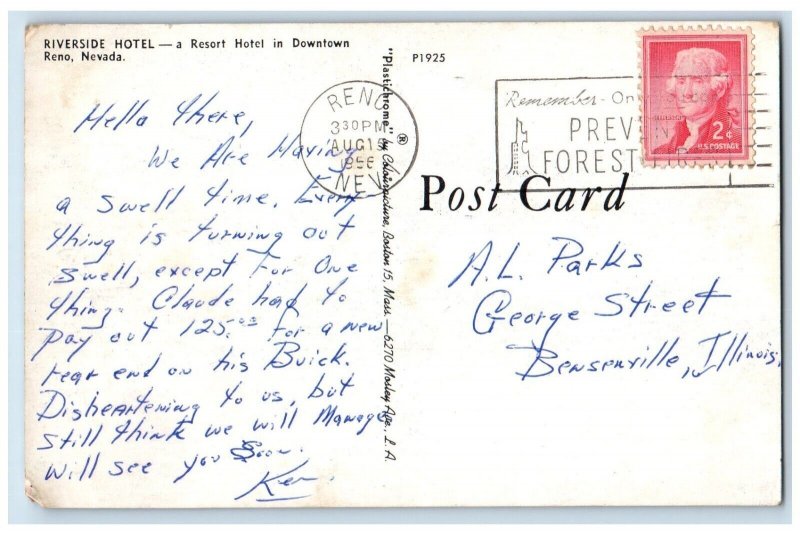 RIVERSIDE HOTEL — a Resort Hotel in Downtown
Reno, Nevada.
Hello there,
We Are Having
a swell time. Every
thing is turning out
swell, except for one
thing. Claude had to
pay out 125.00 for a new
rear end on his Buick.
Disheartening to us, but
still think we will Manage
Will see you Soon.
Ken
"Plastichrome" ® by Colourpicture, Boston 15, Mass. — 6270 Motley Ave. L.A.
P1925
RENO
3 30 PM
AUG 15
1956
NEV
Remember - On
PREV
FOREST
2¢
U.S. POSTAGE
Post Card
A.L. Parks
George Street
Bensenville, Illinois.